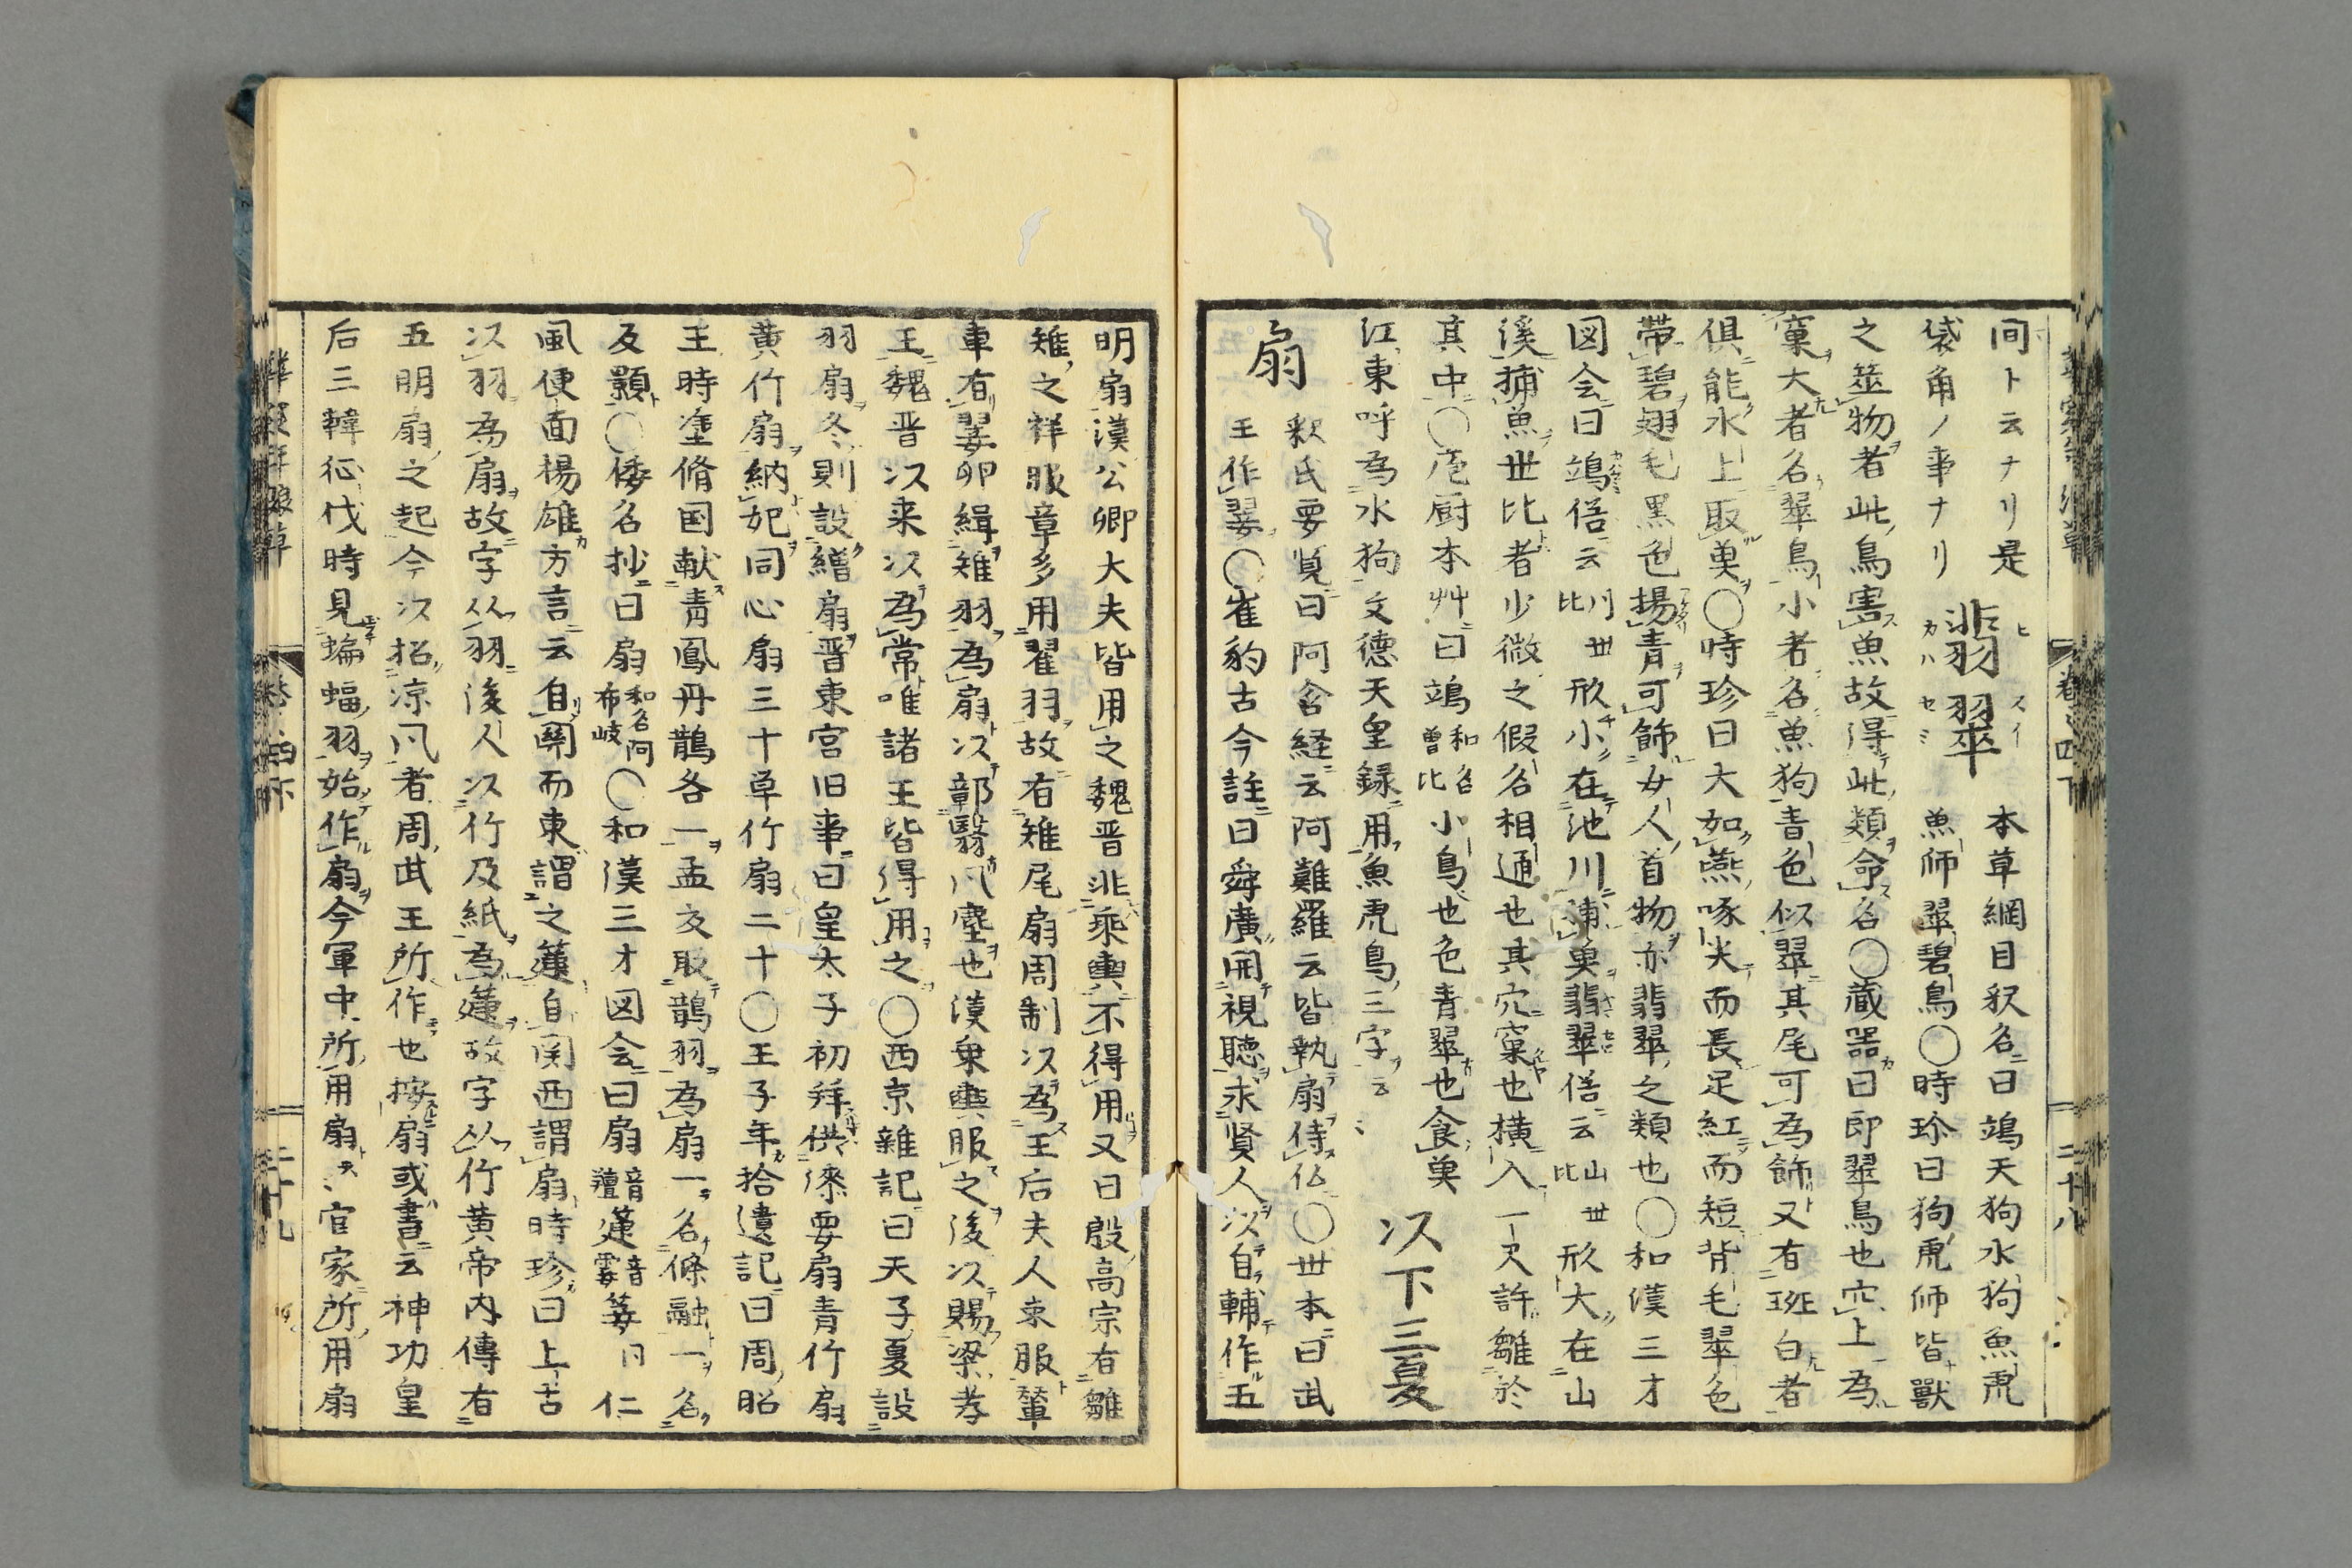 間ト云ナリ是
袋角ノ事ナリ
翡翠 ヒスイ カハセミ
本草綱目釈名ニ曰鴗天狗水狗魚虎
魚師翠碧鳥〇時珍曰狗虎師皆獣
之噬物者此鳥害魚故得此類命名〇蔵器曰即翠鳥也穴上為
窠大者名翠鳥小者名魚狗青色似翠其尾可為飾又有班白者
俱能水上取魚〇時珍曰大如燕喙尖而長足紅而短背毛翠色
帯碧翅毛黒色揚青可飾女人首物亦翡翠之類也〇和漢三才
図会曰鴗俗云川世比形小在池川浦魚翡翠俗云山世比形大在山
溪捕魚世比者少微之假名相通也其穴窠也横入一尺許雛於
其中〇庖厨本艸曰鴗和名曽比小鳥也色青翠也食魚
江東呼為水狗文徳天皇録用魚虎鳥三字云云
以下三夏
扇
釈氏要覧曰阿含経云阿難羅云皆執扇侍仏〇世本曰武
王作翣〇崔豹古今註曰舜廣開視聴求賢人以自輔作五
明扇漢公卿大夫皆用之魏晋非乘輿不得用又曰殷高宗有雛
雉之祥服章多用翟羽故有雉尾扇周制以為王后夫人東服輦
車有翣卯緝雉羽為扇以鄣翳凡塵也漢乗輿服之後以賜梁孝
王魏晋以来以為常唯諸王皆得用之〇西京雑記曰天子夏設
羽扇冬則設繒扇晋東宮旧事曰皇太子初拜供漆要扇青竹扇
黄竹扇納妃同心扇三十草竹扇二十〇王子年拾遺記曰周昭
王時塗脩国献青鳳丹鵲各一孟夏取鵲羽為扇一名條融一名
及顥〇倭名抄曰扇和名阿布岐〇和漢三才図会曰扇音羶箑音霎筹同仁
風便面楊雄方言云自関而東謂之箑自関西謂扇時珍曰上古
以羽為扇故字从羽後人以竹及紙為箑故字从竹黄帝内傳有
五明扇之起今以招涼凡者周武王所作也按扇或書云神功皇
后三韓征伐時見蝙蝠羽始作扇今軍中所用扇也官家所用扇